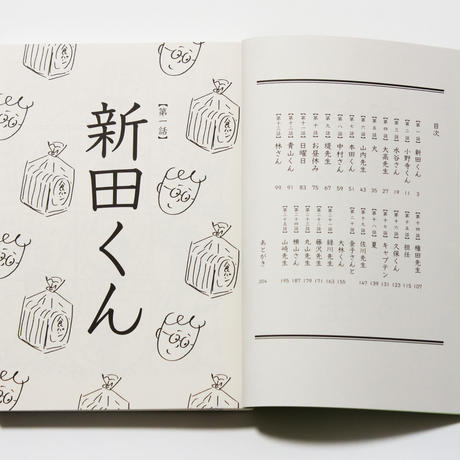 目次
【第一話】新田くん 3
【第二話】小野寺くん 11
【第三話】水谷さん 19
【第四話】大高先生 27
【第五話】犬 35
【第六話】山内先生 43
【第七話】本田くん 51
【第八話】中村さん 59
【第九話】堤先生 67
【第十話】お昼休み 75
【第十一話】日曜日 83
【第十二話】青山くん 91
【第十三話】林さん 99
【第十四話】権田先生 107
【第十五話】担任 115
【第十六話】久保くん 123
【第十七話】キャプテン 131
【第十八話】夏 139
【第十九話】佐川先生 147
【第二十話】金子さんと
大林くん 155
【第二十一話】緑川先生 163
【第二十二話】藤沢先生 171
【第二十三話】丸山先生 179
【第二十四話】横山さん 187
【第二十五話】山崎先生 195
あとがき 204
【第一話】
新田くん